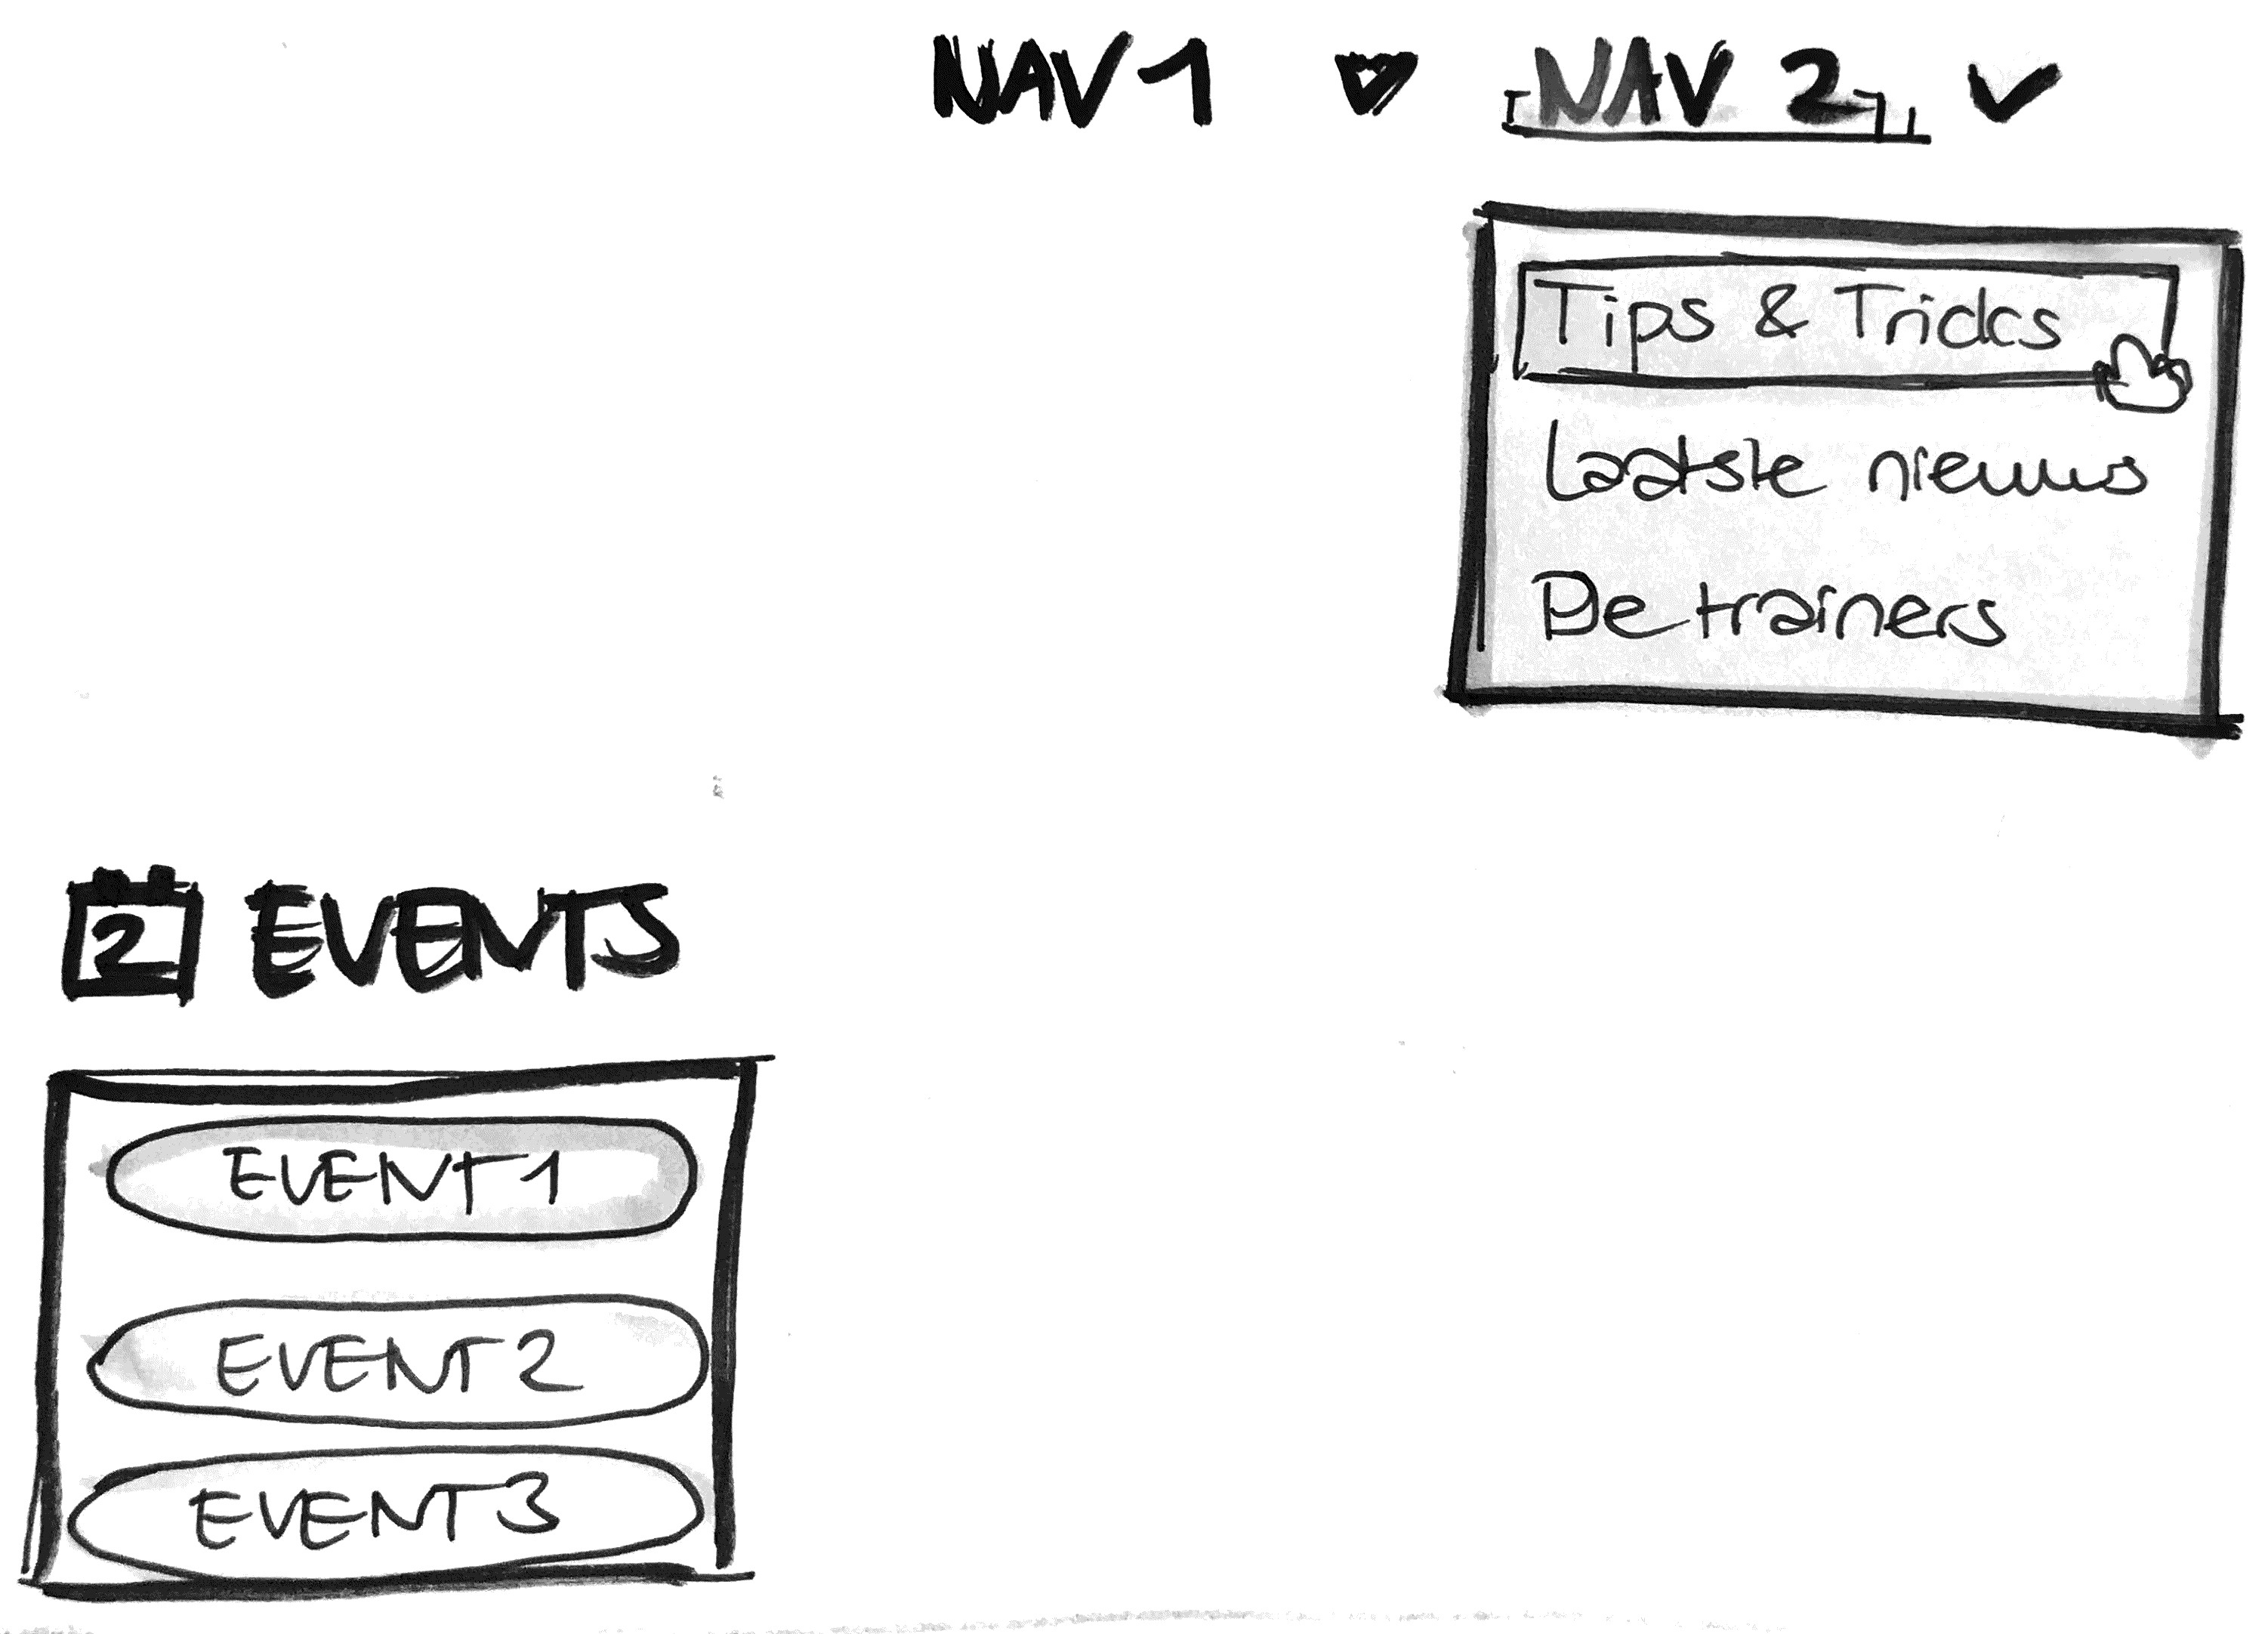 NAV 1 NAV 2
Tips & Tricks
Laatste nieuws
De trainers
2 EVENTS
EVENT 1
EVENT 2
EVENT 3